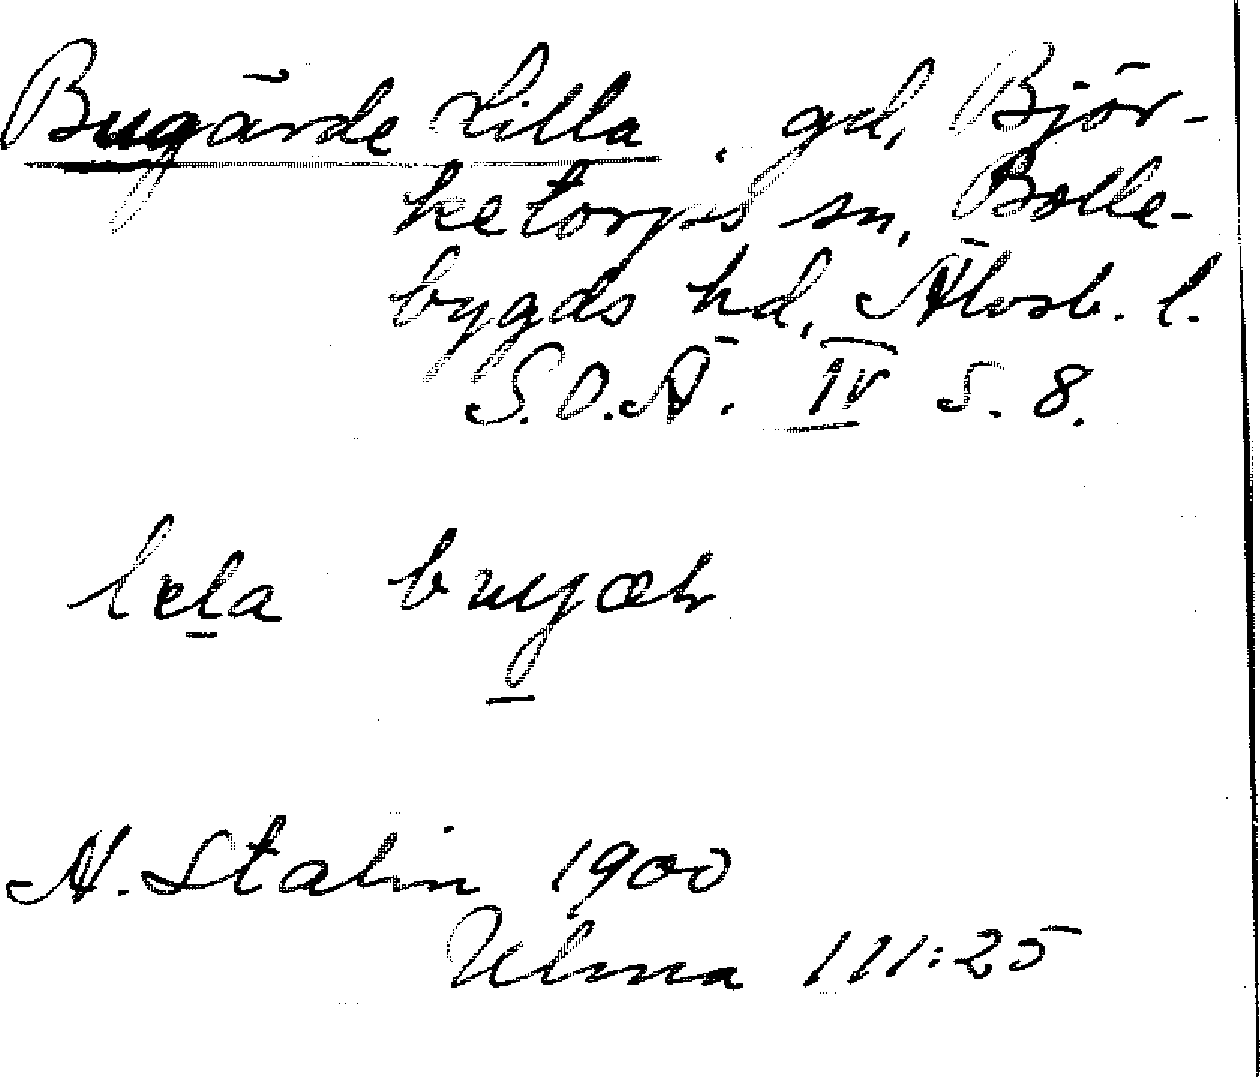 Bugärde Lilla, gd, Björ-
ketorps sn, Bolle-
bygds hd, Älvsb. l.
S.O.Ä. IV s. 8.
lela
A. Stalin 1900
Ulma 111:25